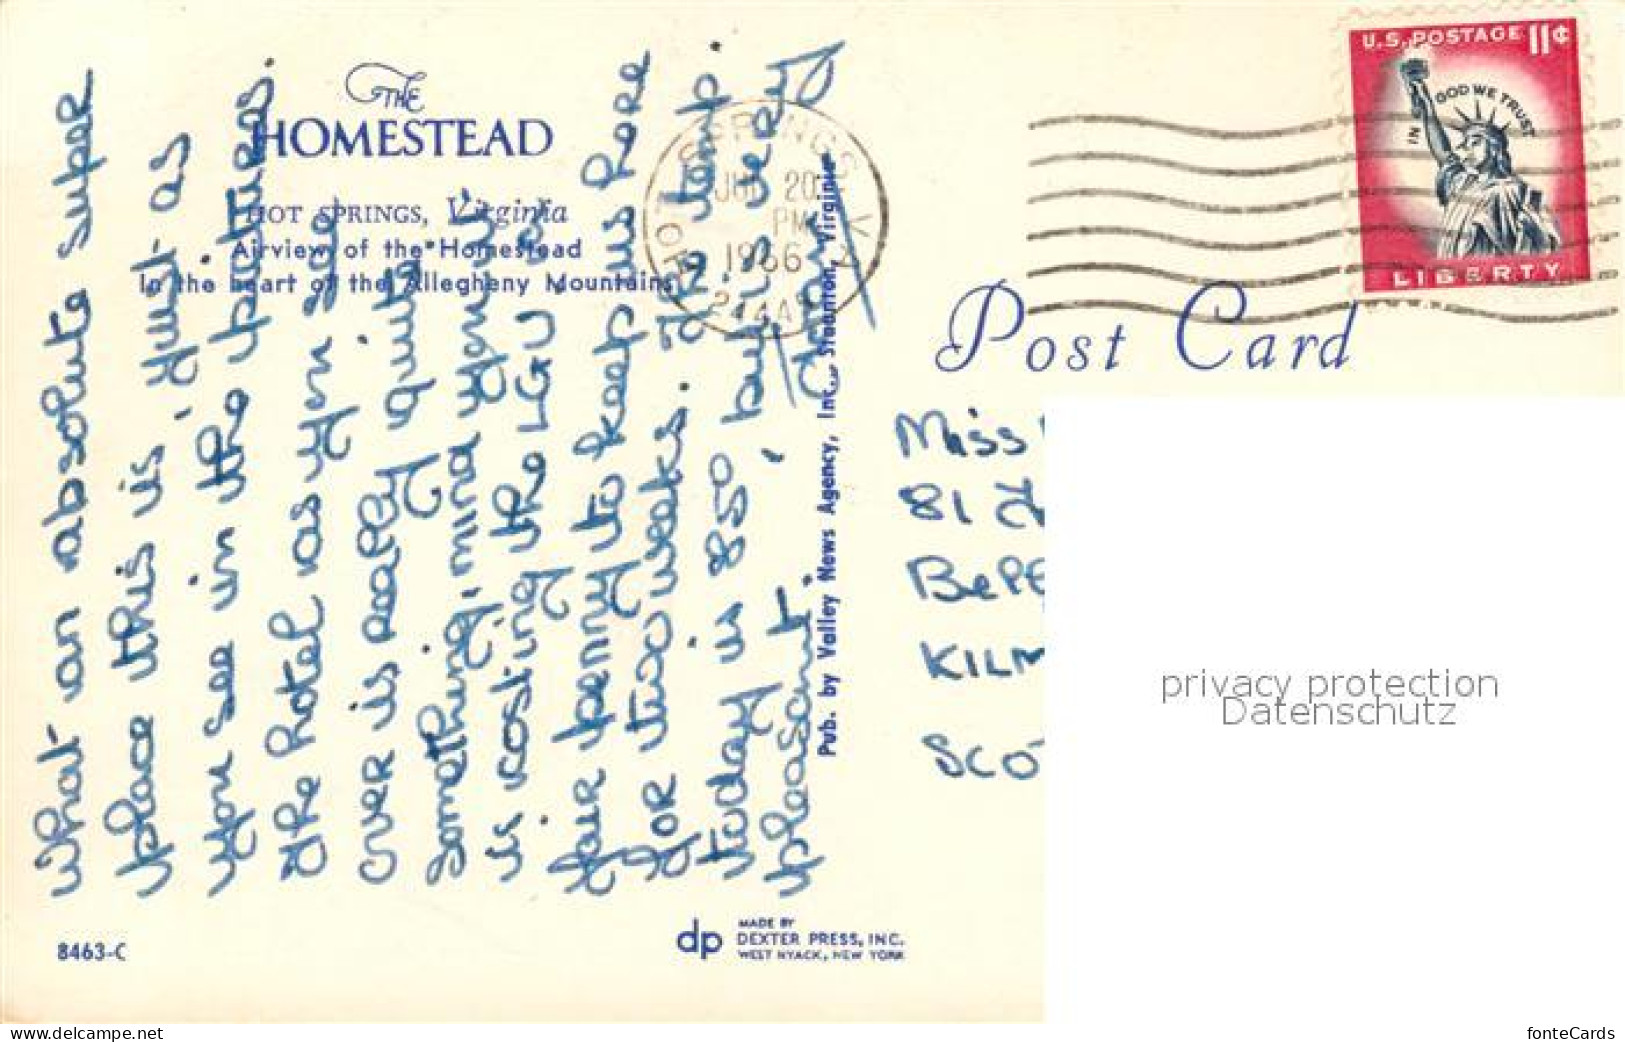 The
HOMESTEAD
HOT SPRINGS, Virginia
Airview of the Homestead
In the heart of the Allegheny Mountains
What an absolute super
place this is, just as
you see in the pictures.
The hotel as you see
over is really quite
something, mind you it
is costing the LGU a
fair penny to keep us here
for two weeks. The temp.
today is 85°, but is very
pleasant.
Pub. by Valley News Agency, Inc., Staunton, Virginia
HOT SPRINGS, VA
20
PM
1966
U.S. POSTAGE 11¢
IN GOD WE TRUST
LIBERTY
Post Card
Miss
81
KILM
SCO
privacy protection
Datenschutz
8463-C
dp MADE BY
DEXTER PRESS, INC.
WEST NYACK, NEW YORK
www.delcampe.net
fonteCards